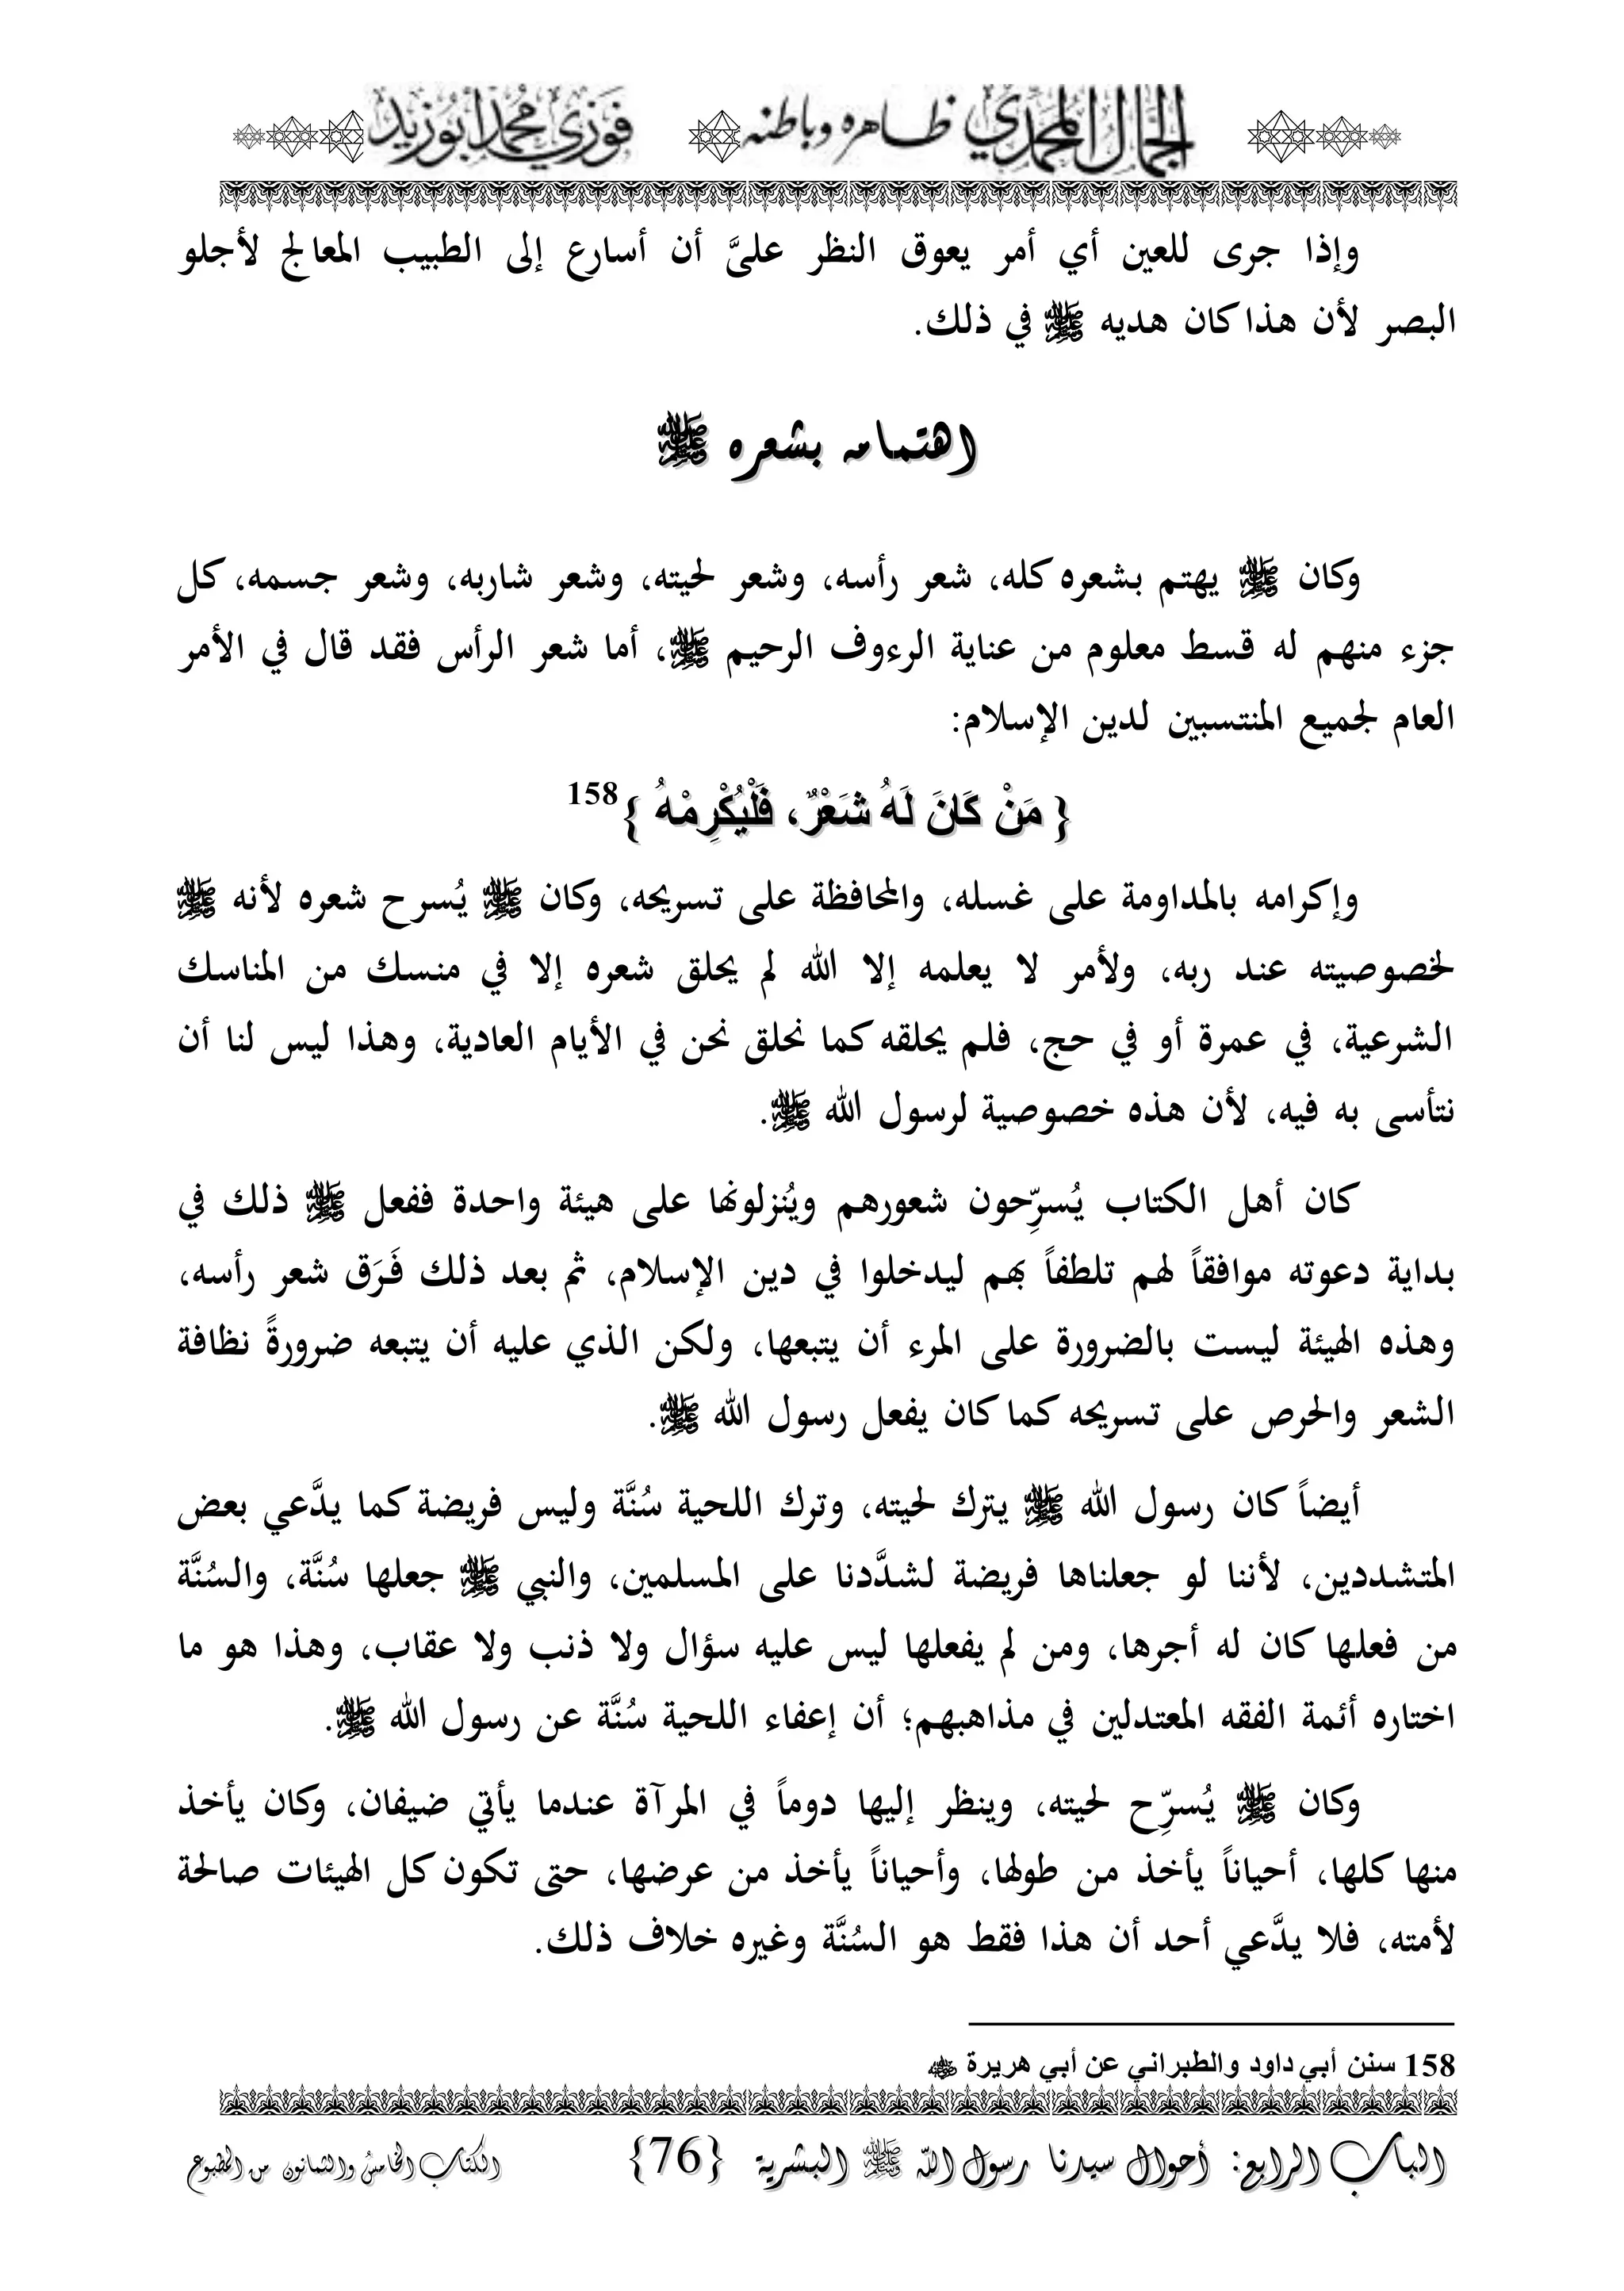 الجمال المحمدي ظاهره وباطنه فوزي محمد أبوزيد
وإذا جرى للعين أي أمر يعوق النظر علىَّ أن أسارع إلى الطبيب المعالج لأجلو
البصر لأن هذا كان هديه ﷺ في ذلك.
اهتمامه بشعره ﷺ
وكان ﷺ يهتم بشعره كله، شعر رأسه، وشعر لحيته، وشعر شاربه، وشعر جسمه، كل
جزء منهم له قسط معلوم من عناية الرءوف الرحيم ﷺ، أما شعر الرأس فقد قال في الأمر
العام لجميع المنتسبين لدين الإسلام:
{ مَنْ كَانَ لَهُ شَعْرٌ، فَلْيُكْرِمْهُ }158
وإكرامه بالمداومة على غسله، والمحافظة على تسريحه، وكان ﷺ يُسرح شعره لأنه ﷺ
لخصوصيته عند ربه، ولأمر لا يعلمه إلا الله لم يحلق شعره إلا في منسك من المناسك
الشرعية، في عمرة أو في حج، فلم يحلقه كما نحلق نحن في الأيام العادية، وهذا ليس لنا أن
نتأسى به فيه، لأن هذه خصوصية لرسول الله ﷺ.
كان أهل الكتاب يُسرِّحون شعورهم ويُنزلونها على هيئة واحدة ففعل ﷺ ذلك في
بداية دعوته موافقاً لهم تلطفاً بهم ليدخلوا في دين الإسلام، ثم بعد ذلك فَرَق شعر رأسه،
وهذه الهيئة ليست بالضرورة على المرء أن يتبعها، ولكن الذي عليه أن يتبعه ضرورةً نظافة
الشعر والحرص على تسريحه كما كان يفعل رسول الله ﷺ.
أيضاً كان رسول الله ﷺ يترك لحيته، وترك اللحية سُنَّة وليس فريضة كما يدَّعي بعض
المتشددين، لأننا لو جعلناها فريضة لشدَّدنا على المسلمين، والنبي ﷺ جعلها سُنَّة، والسُنَّة
من فعلها كان له أجرها، ومن لم يفعلها ليس عليه سؤال ولا ذنب ولا عقاب، وهذا هو ما
اختاره أئمة الفقه المعتدلين في مذاهبهم؛ أن إعفاء اللحية سُنَّة عن رسول الله ﷺ.
وكان ﷺ يُسرِّح لحيته، وينظر إليها دوماً في المرآة عندما يأتي ضيفان، وكان يأخذ
منها كلها، أحياناً يأخذ من طولها، وأحياناً يأخذ من عرضها، حتى تكون كل الهيئات صالحة
لأمته، فلا يدَّعي أحد أن هذا فقط هو السُنَّة وغيره خلاف ذلك.
158 سنن أبي داود والطبراني عن أبي هريرة
الباب الرابع: أحوال سيدنا رسول الله ﷺ البشرية {76} الكتاب الخامس والثمانون من المطبوع